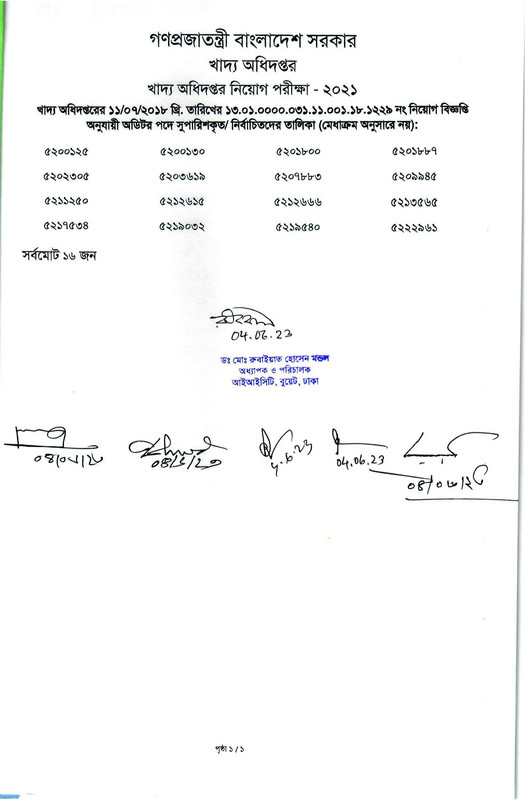 গণপ্রজাতন্ত্রী বাংলাদেশ সরকার
খাদ্য অধিদপ্তর
খাদ্য অধিদপ্তর নিয়োগ পরীক্ষা - ২০২১
খাদ্য অধিদপ্তরের ১১/০৭/২০১৮ খ্রি. তারিখের ১৩.০১.০০০০.০৩১.১১.০০১.১৮.১২২৯ নং নিয়োগ বিজ্ঞপ্তি
অনুযায়ী অডিটর পদে সুপারিশকৃত/ নির্বাচিতদের তালিকা (মেধাক্রম অনুসারে নয়):
৫২০০১২৫ ৫২০০১৩০ ৫২০১৮০০ ৫২০১৮৮৭
৫২০২৩০৫ ৫২০৩৬১৯ ৫২০৭৮৮৩ ৫২০৯৯৪৫
৫২১১২৫০ ৫২১২৬১৫ ৫২১২৬৬৬ ৫২১৩৫৬৫
৫২১৭৫৩৪ ৫২১৯০৩২ ৫২১৯৫৪০ ৫২২২৯৬১
সর্বমোট ১৬ জন
04.06.23
ডঃ মোঃ রুবাইয়াত হোসেন মন্ডল
অধ্যাপক ও পরিচালক
আইআইসিটি, বুয়েট, ঢাকা
4.6.23 04.06.23
পৃষ্ঠা ১ / ১